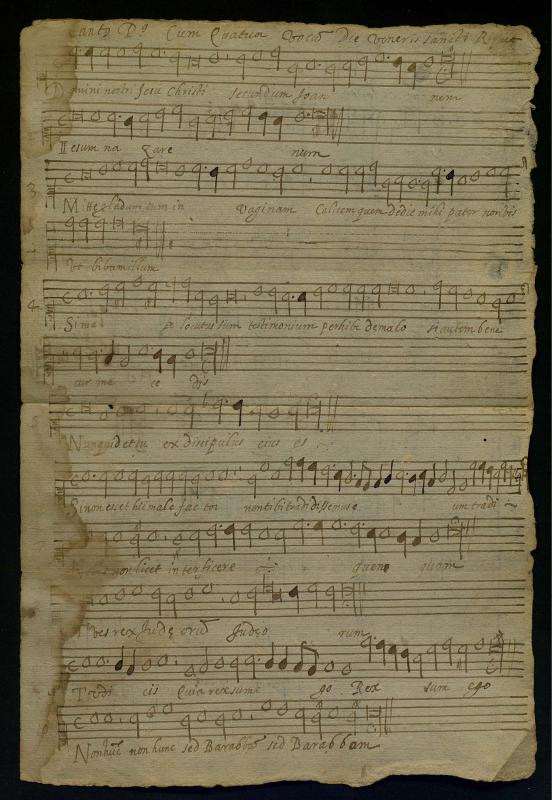 Cantus Do Cum Quatuor Vocū Die Veneris sancti
mini nostri Jesu Christi secundum Joan nem
Iesum na zare num
3
Mitte gladium tuum in Vaginam Calicem quem dedit mihi pater non vis
Ut bibam illum
4
Si ma le locutus sum testimonium perhibe de malo si autem bene
cur me ce dis
Nunquid et tu ex discipulus eius es
Si non esset hic malefactor non tibi tradidissemus e um tradi
non licet interficere quenquam
Aves rex Judę orū Judęo rum
Tu di cis Quia rex sum e go Rex sum ego
Non hūc non hunc sed Barabbā sed Barabbam